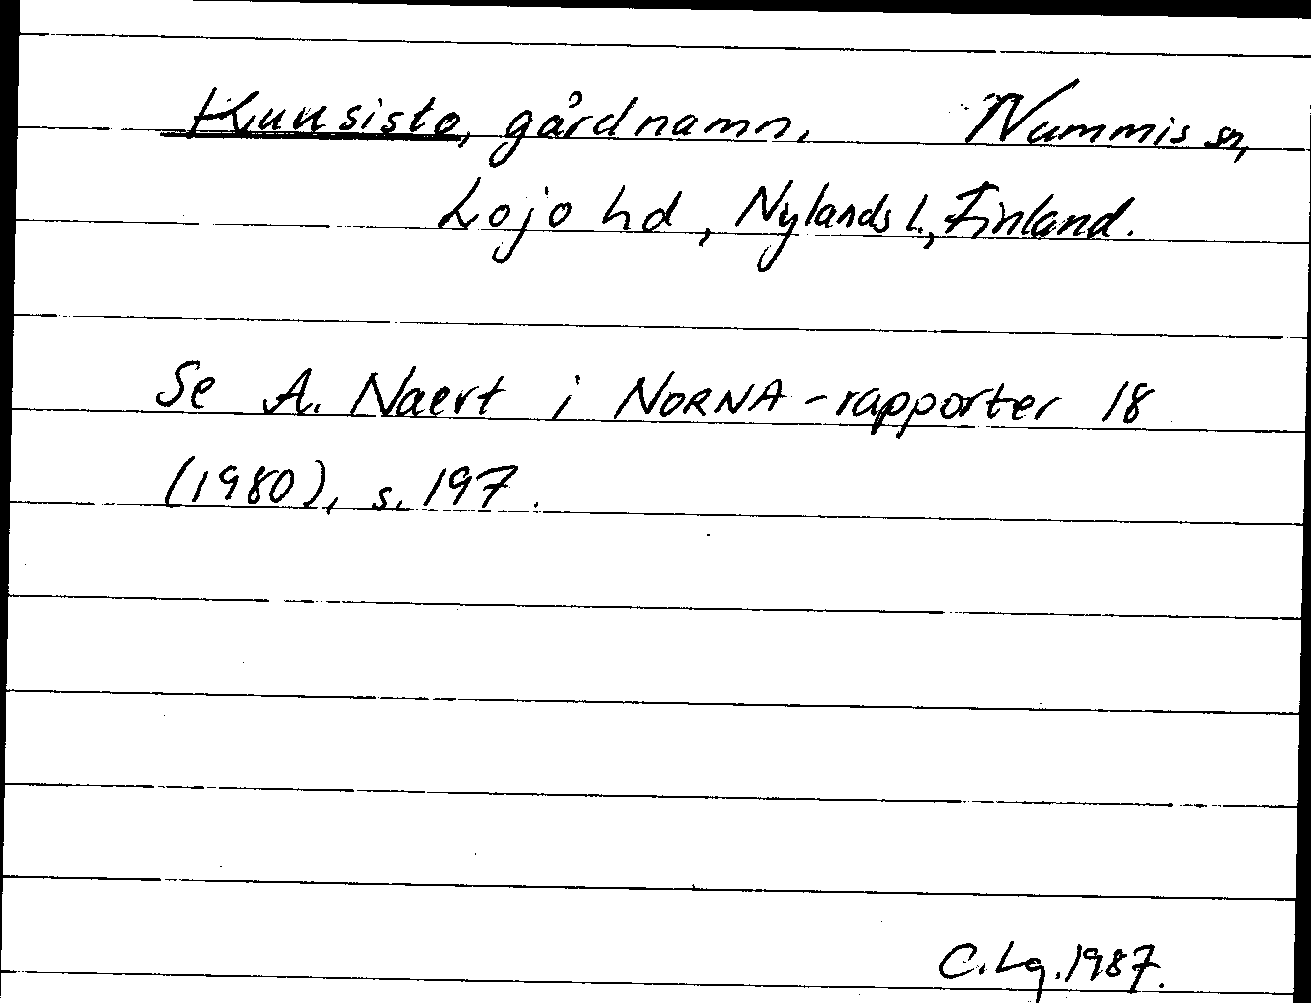 Kuusisto, gårdnamn. Nummis sn,
Lojo hd, Nylands l., Finland.
Se A. Naert i NORNA-rapporter 18
(1980), s. 197.
C.Lg. 1987.